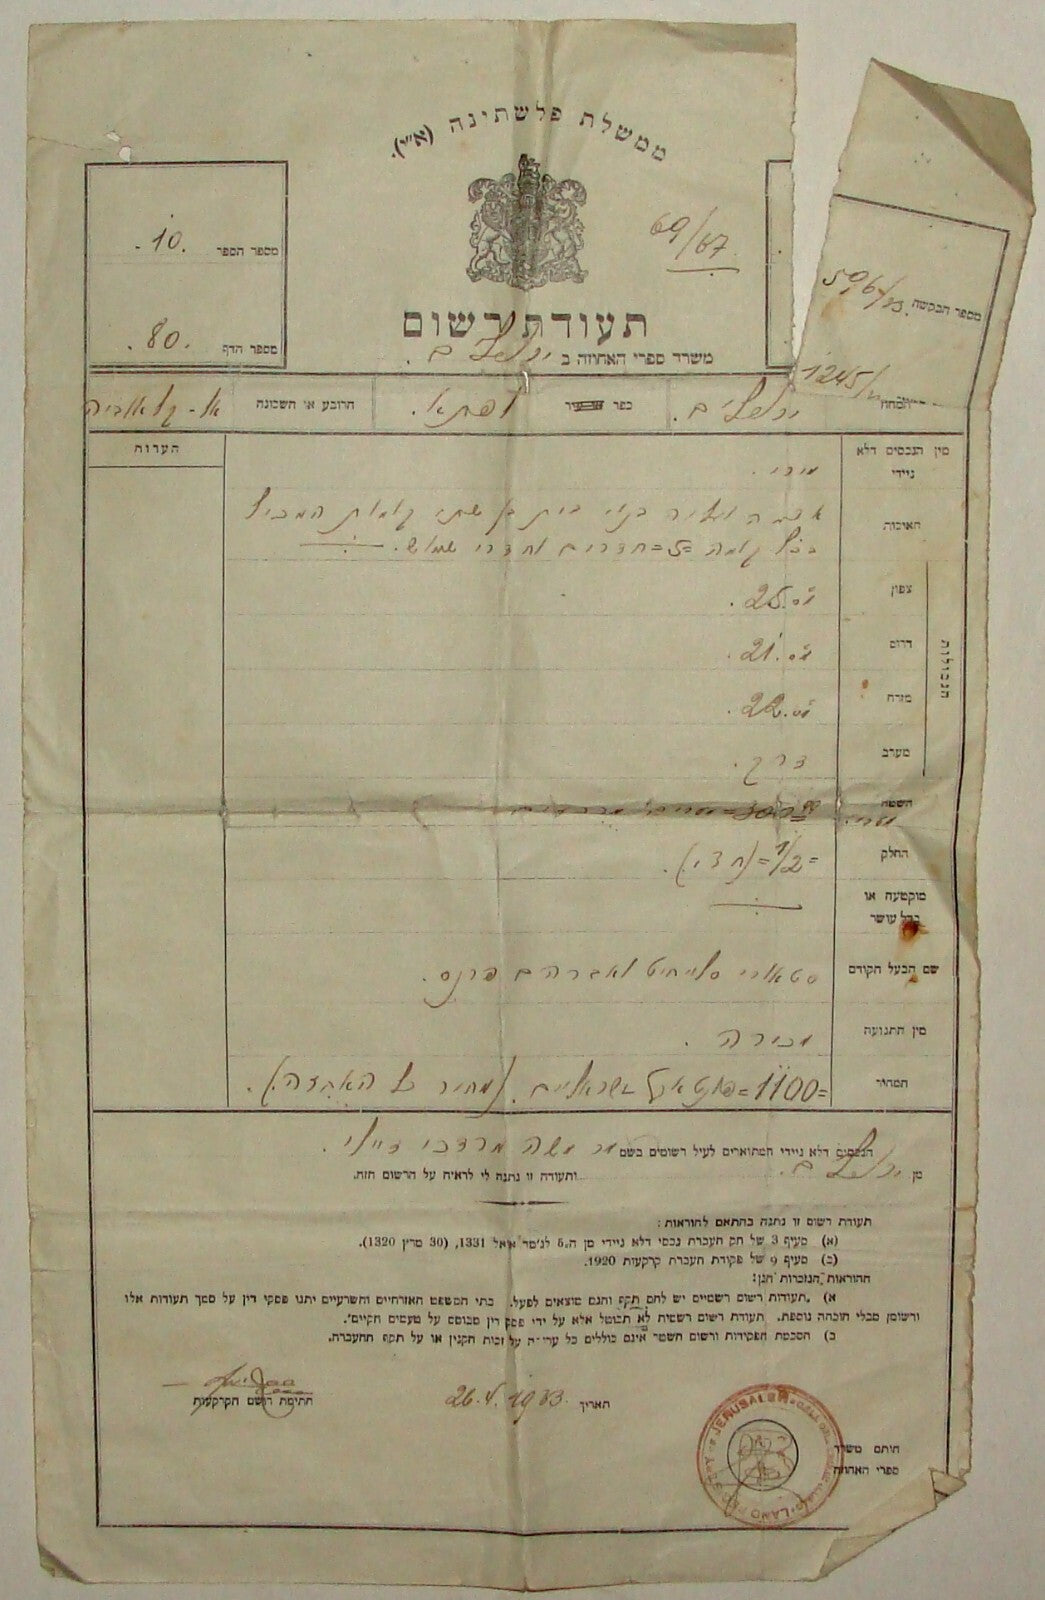 ממשלת פלשתינה (א״י).
69/67
מספר הספר 10.
מספר הדף 80.
מספר הבקשה 596/33.
1245/
תעודת רשום
משרד ספרי האחוזה ב ירושלים.
ירושלים.
כפר לפתא.
הרובע או השכונה
הערות
מין הנכסים דלא ניידי מירי.
האיכות אדמה ועליה בנוי בית בן שתי קומות המכיל
בכל קומה =5= חדרים וחדרי שמוש.
הגבולות
צפון 25.
דרום 21.
מזרח 22.
מערב דרך.
השטח
החלק =1/2= (חצי).
מוקטעה או
בדל עושר
שם הבעל הקודם ואברהם פרנס.
מין התנועה מכירה.
המחיר =1100= פונט א״י ישראליים. (מחיר כל האחוזה).
הנכסים דלא ניידי המתוארים לעיל רשומים בשם מר משה מרדכי
מן ירושלים. ותעודה זו נתנה לי לראיה על הרשום הזה.
תעודת רשום זו נתנה בהתאם להוראות:
(א) סעיף 3 של חק העברת נכסי דלא ניידי מן ה5 לג׳מד אואל 1331, (30 מרץ 1320).
(ב) סעיף 9 של פקודת העברת קרקעות 1920.
ההוראות הנזכרות הנן:
א) תעודות רשום רשמיות יש להם תקף והנם מוצאים לפעל. בתי המשפט האזרחיים והשרעיים יתנו פסקי דין על סמך תעודות אלו
ורשומן מבלי הוכחה נוספת. תעודת רשום רשמית לא תבוטל אלא על ידי פסק דין מבוסס על טעמים חקיים.
ב) הסכמת הפקידות ורשום השטר אינם כוללים כל ערבות על זכות הקנין או על תקף ההעברה.
חתימת רושם הקרקעות
תאריך 26.4.1933
חותם משרד
ספרי האחוזה
JERUSALEM
LAND REGISTRY